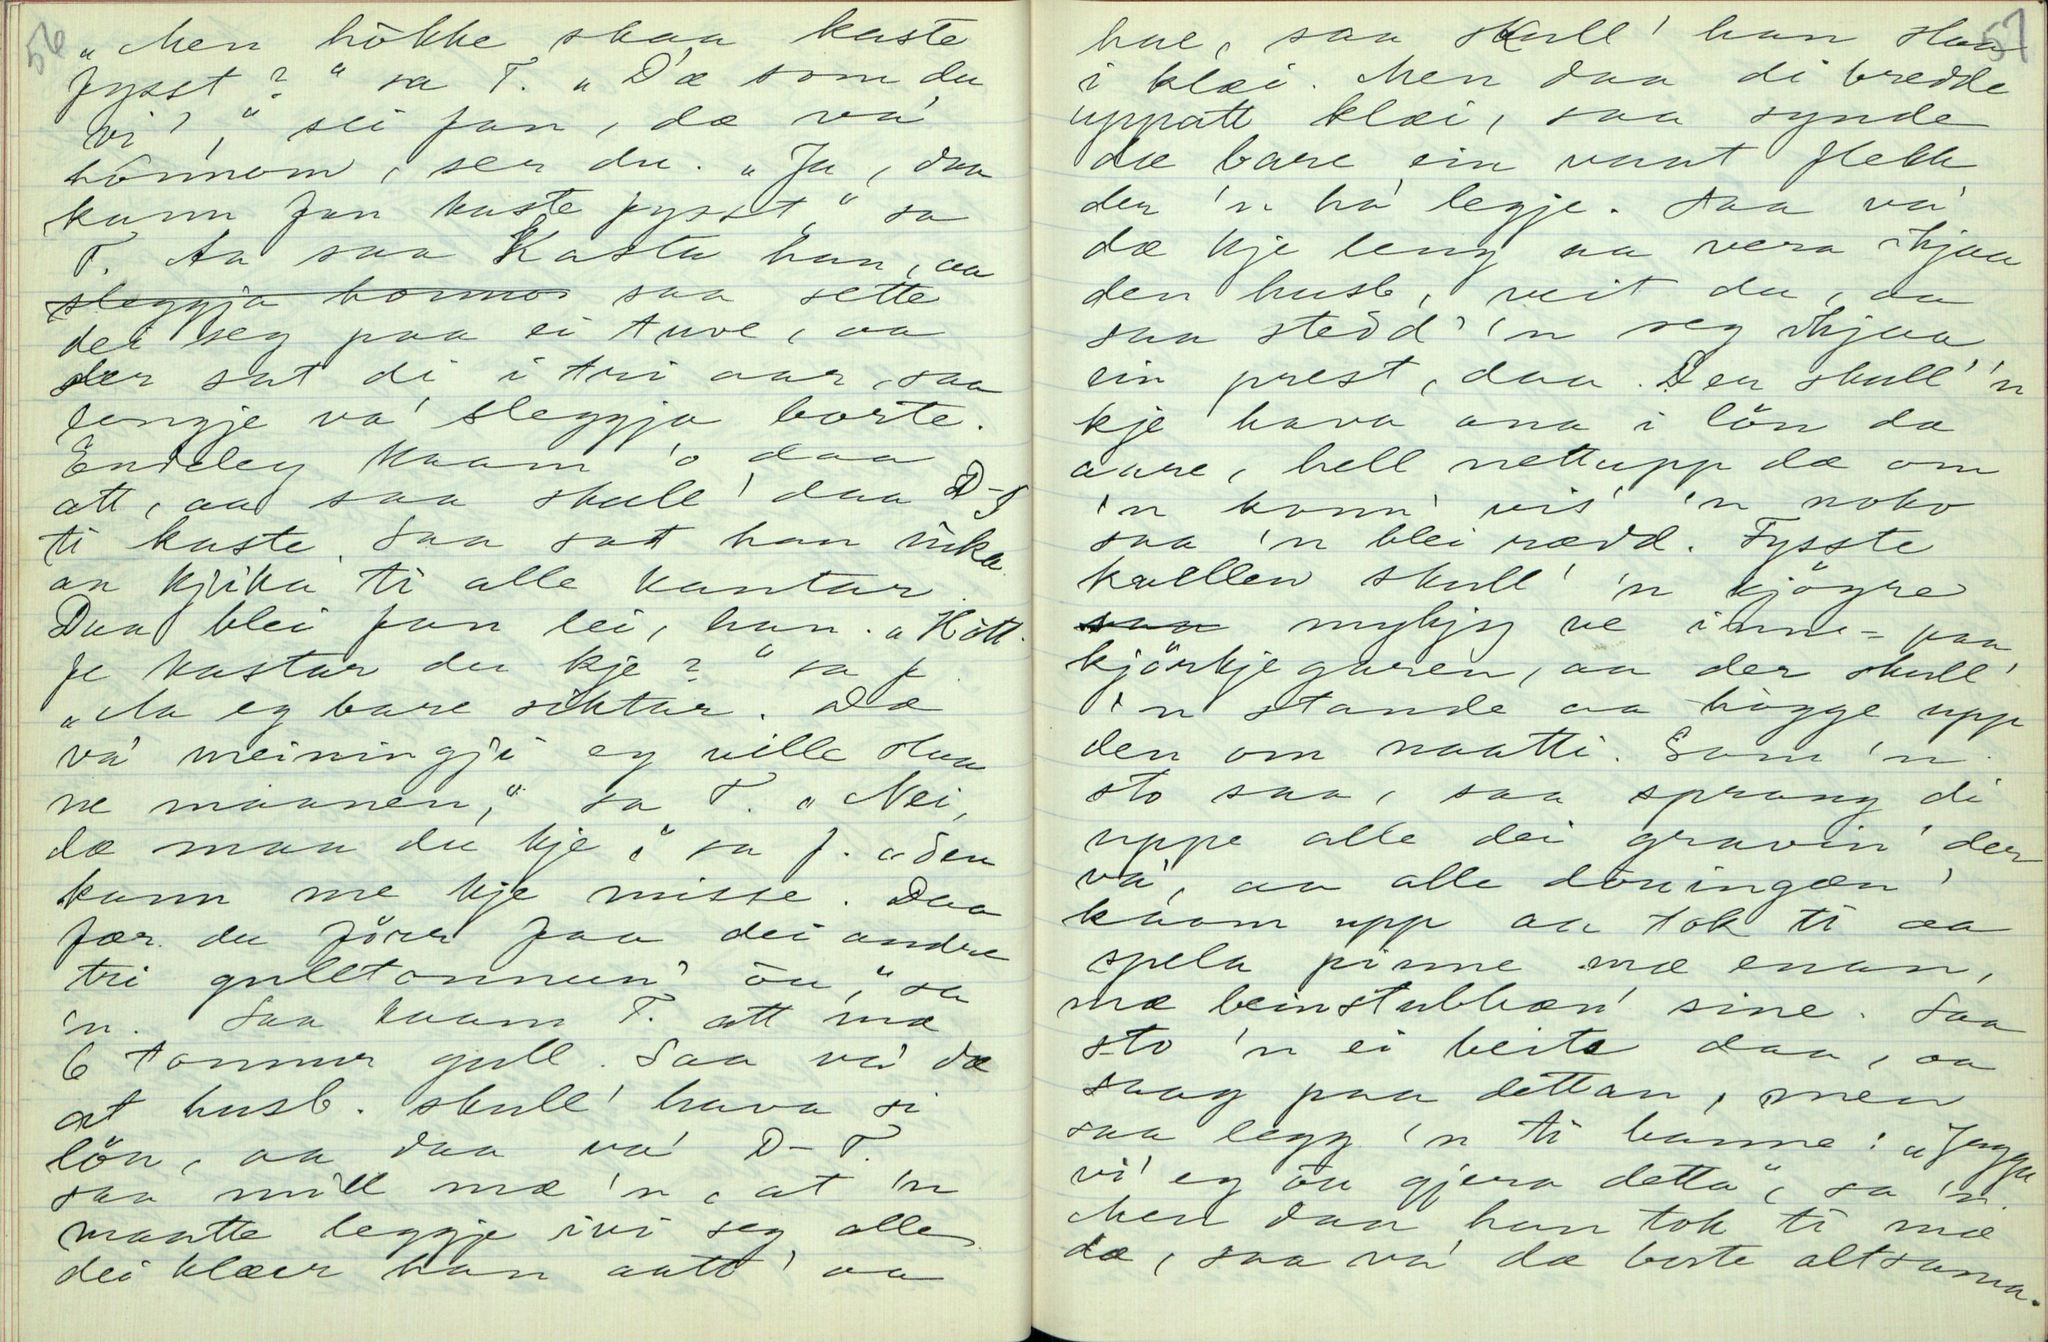 56
„Men hökke skaa kaste
fysst?“ sa T. „D'æ som du
vi',“ sei fan, dæ va'
hónnom, ser du. „Ja, daa
kann fan kaste fysst,“ sa
T. Aa saa kasta han, aa
sleggja saa sette
dei seg paa ei tuve, aa
der sat di i tri aar, saa
lengje va' sleggja borte.
Endeleg kaam 'o daa
att, aa saa skull' daa D-T
ti kaste. Saa sat han
aa kjika ti alle kantar.
Daa blei fan lei, han. „Kött
fe kastar du kje?“ sa f.
„Aa eg bare siktar. Dæ
va' meiningji eg ville slaa
ne maanen,“ sa T. „Nei,
dæ maa du kje,“ sa f. „den
kann me kje misse. Daa
fær du förr faa dei andre
tri gulltonnun' öu,“ sa
'n. Saa kaam T. att mæ
6 tonnur gull. Saa va' dæ
at husb. skull' hava si
lön, aa daa va' D-T.
saa mill mæ 'n, at 'n
maatte leggje ivi seg alle
dei klæir han aatt' aa
57
hae, saa skull' han slaa
i klæi. Men daa di bredde
uppatt klæi, saa synde
dæ bare ein vaat flekk
der 'n ha' legje. Saa va'
dæ kje leng aa vera ihjaa
den husb, veit du, aa
saa stedd' 'n seg ihjaa
ein prest, daa. Der skull' 'n
kje hava ana i lön da
aare, hell nettupp dæ om
'n kunn' vis' 'n noko
saa 'n blei rædd. Fysste
kvellen skull' 'n kjögre
saa mykjy ve inne-paa
kjörkjegaren, aa der skull'
'n stande aa högge upp
den om naatti. Som 'n
sto saa, saa sprang di
uppe alle dei gravin' der
va', aa alle döningæn'
kaam upp aa tok ti aa
spela pinne mæ enan,
mæ beinstubbæn' sine. Saa
sto 'n ei beite daa, aa
saag paa dettan, men
saa legg 'n ti banne: „Jaggu
vi' eg öu gjera detta“, sa 'n.
Men daa han tok ti mæ
dæ, saa va' dæ borte altsama.